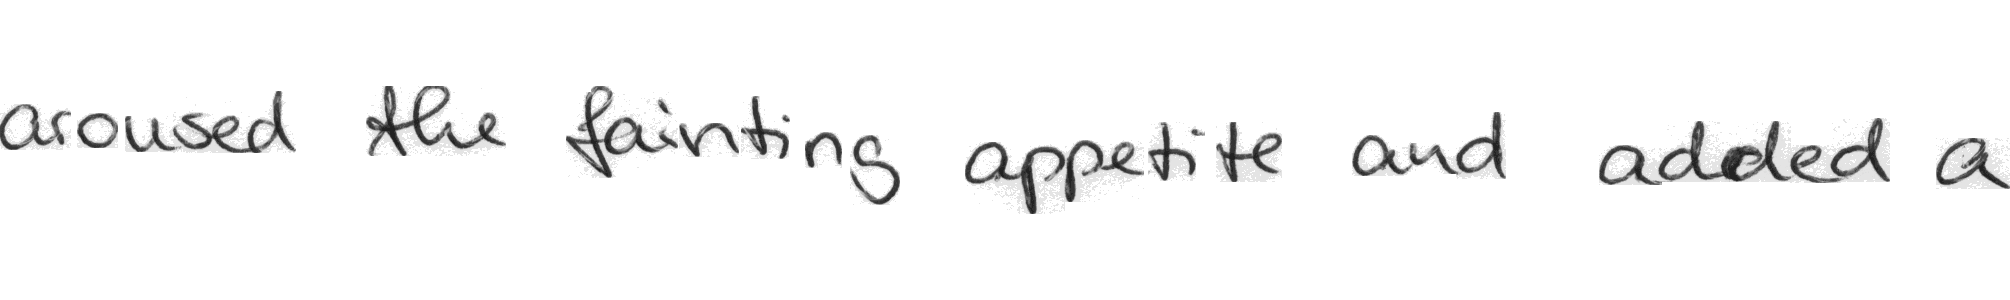 aroused the fainting appetite and added a